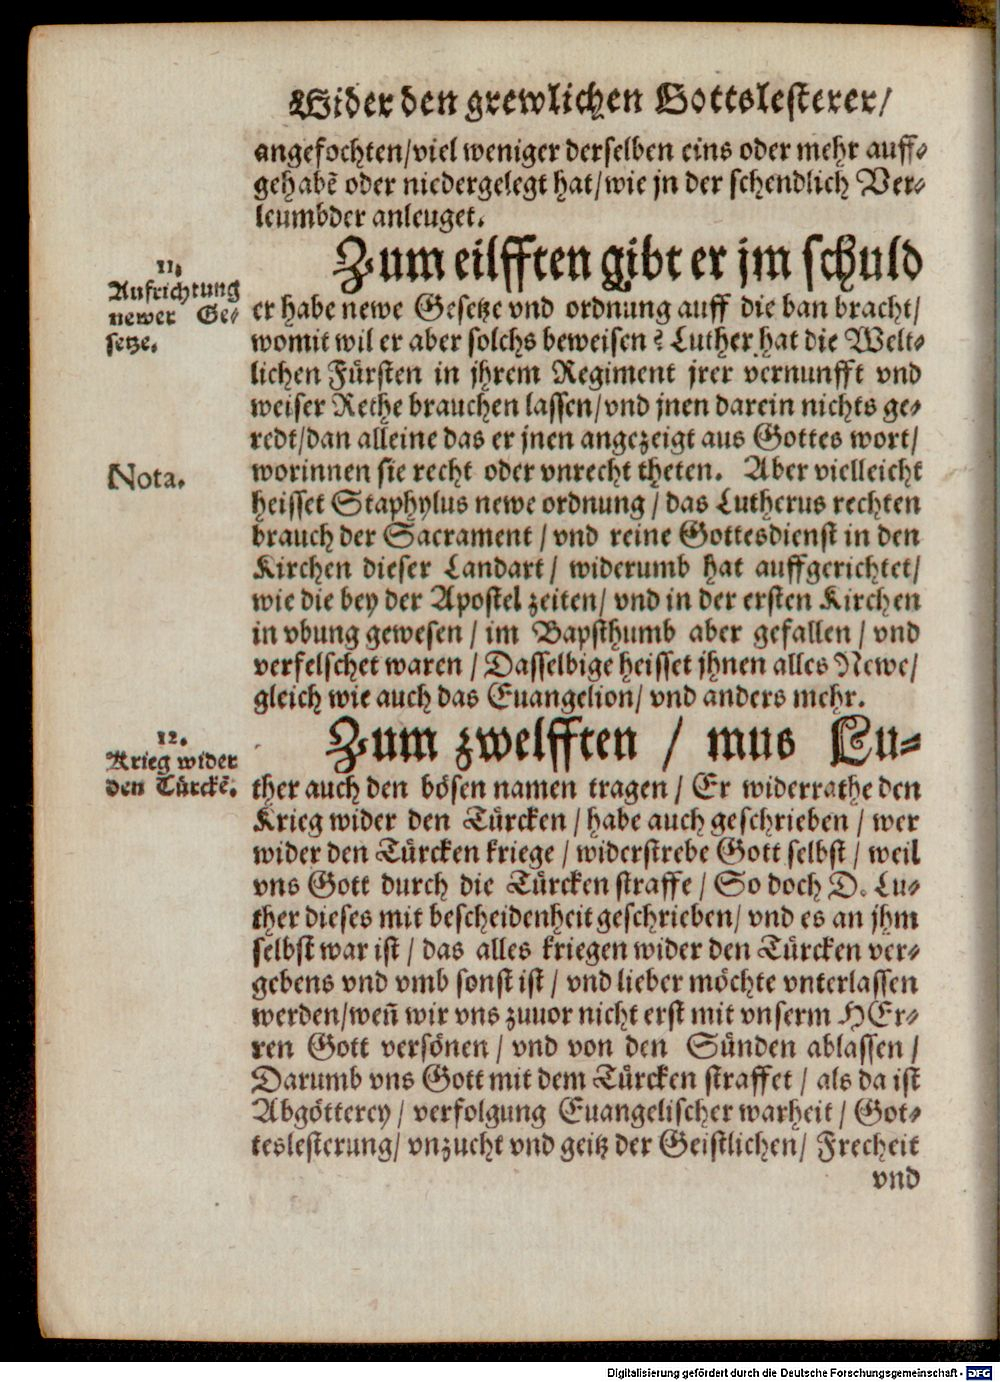 Wider den grewlichen Gottslesterer/
angefochten/viel weniger derselben eins oder mehr auff-
gehabẽ oder niedergelegt hat/wie jn der schendlich Ver-
leumbder anleuget.
11.
Aufrichtung
newer Ge-
setze.
Zum eilfften gibt er jm schuld
er habe newe Gesetze vnd ordnung auff die ban bracht/
womit wil er aber solchs beweisen? Luther hat die Welt-
lichen Fürsten in jhrem Regiment jrer vernunfft vnd
weiser Rethe brauchen lassen/vnd jnen darein nichts ge-
redt/dan alleine das er jnen angezeigt aus Gottes wort/
Nota.
worinnen sie recht oder vnrecht theten. Aber vielleicht
heisset Staphylus newe ordnung/das Lutherus rechten
brauch der Sacrament/vnd reine Gottesdienst in den
Kirchen dieser Landart/widerumb hat auffgerichtet/
wie die bey der Apostel zeiten/vnd in der ersten Kirchen
in vbung gewesen/im Bapsthumb aber gefallen/vnd
verfelschet waren/Dasselbige heisset jhnen alles Newe/
gleich wie auch das Euangelion/vnd anders mehr.
12.
Krieg wider
den Türckẽ.
Zum zwelfften/mus Lu-
ther auch den bösen namen tragen/Er widerrathe den
Krieg wider den Türcken/habe auch geschrieben/wer
wider den Türcken kriege/widerstrebe Gott selbst/weil
vns Gott durch die Türcken straffe/So doch D. Lu-
ther dieses mit bescheidenheit geschrieben/vnd es an jhm
selbst war ist/das alles kriegen wider den Türcken ver-
gebens vnd vmb sonst ist/vnd lieber möchte vnterlassen
werden/weñ wir vns zuuor nicht erst mit vnserm HEr-
ren Gott versönen/vnd von den Sünden ablassen/
Darumb vns Gott mit dem Türcken straffet/als da ist
Abgötterey/verfolgung Euangelischer warheit/Got-
teslesterung/vnzucht vnd geitz der Geistlichen/Frecheit
vnd
Digitalisierung gefördert durch die Deutsche Forschungsgemeinschaft - DFG